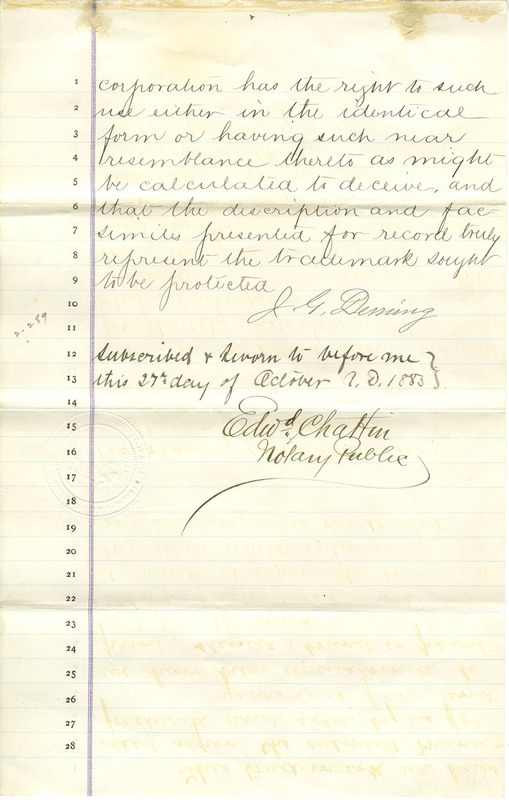 1 corporation has the right to such
2 use either in the identical
3 form or having such near
4 resemblance thereto as might
5 be calculated to deceive, and
6 that the discription and fac-
7 similes presented for record truly
8 represent the trademark sought
9 to be protected
10 J. G. Deming
2-289
11
12 Subscribed & Sworn to before me }
13 this 27th day of October A.D. 1883 }
14
15 Edwd. Chattin
16 Notary Public
17
18
19
20
21
22
23
24
25
26
27
28